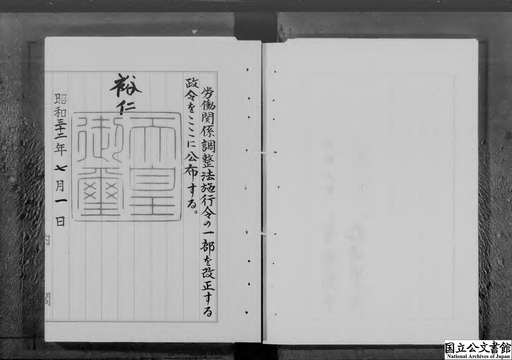 労働関係調整法施行令の一部を改正する
政令をここに公布する。
裕仁
天皇
御璽
昭和三十二年七月一日
内閣
国立公文書館
National Archives of Japan